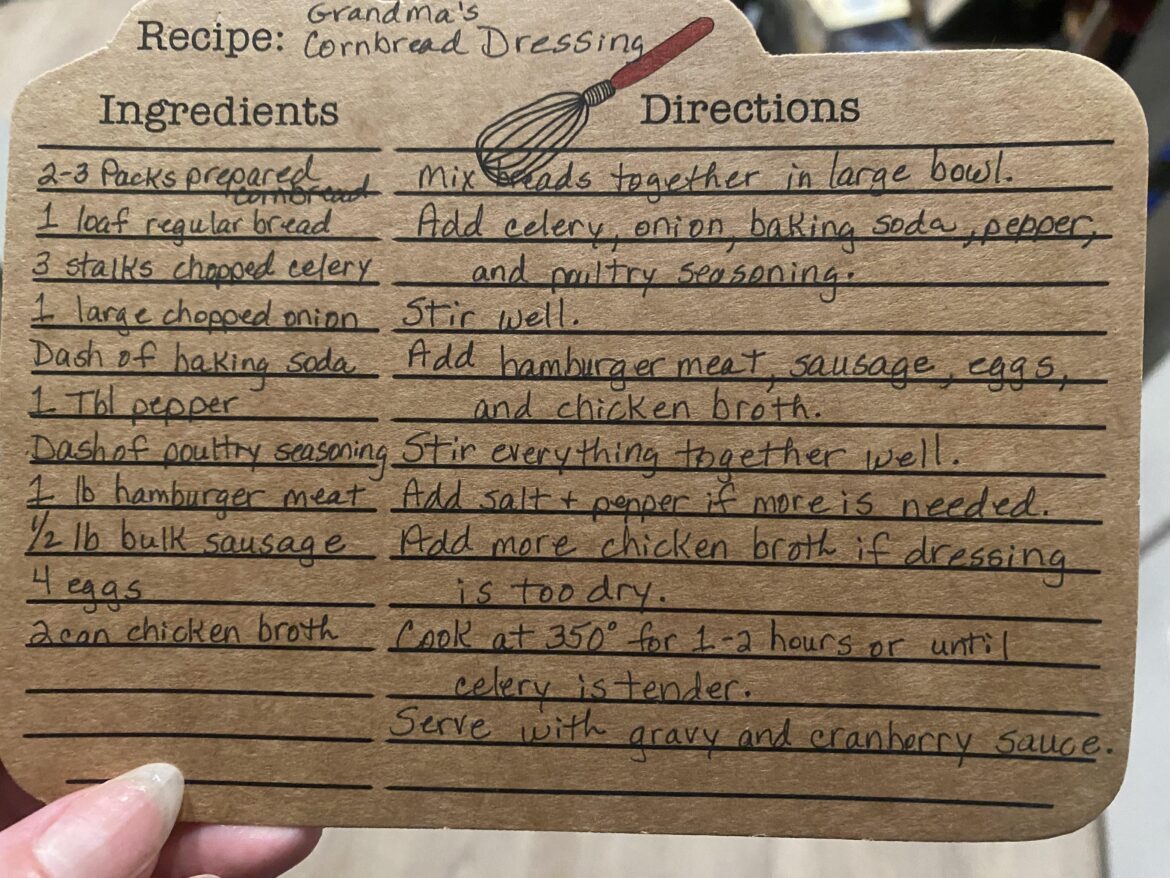 Grandma's
Recipe: Cornbread Dressing
Ingredients
2-3 Packs prepared
cornbread
1 loaf regular bread
3 stalks chopped celery
1 large chopped onion
Dash of baking soda
1 Tbl pepper
Dash of poultry seasoning
1 lb hamburger meat
1/2 lb bulk sausage
4 eggs
2 can chicken broth
Directions
Mix breads together in large bowl.
Add celery, onion, baking soda, pepper,
and poultry seasoning.
Stir well.
Add hamburger meat, sausage, eggs,
and chicken broth.
Stir everything together well.
Add salt + pepper if more is needed.
Add more chicken broth if dressing
is too dry.
Cook at 350° for 1-2 hours or until
celery is tender.
Serve with gravy and cranberry sauce.